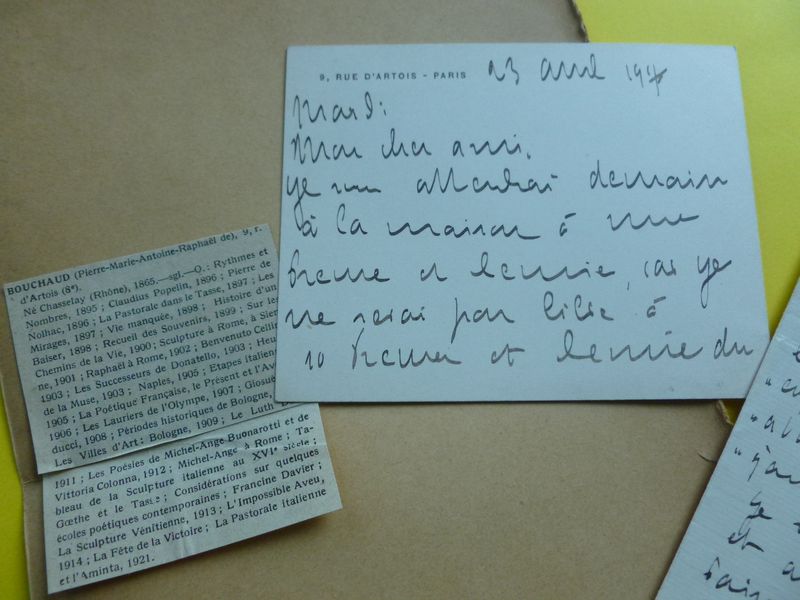 9, RUE D'ARTOIS - PARIS 23 avril
Mardi
Mon cher ami,
je vous attendrai demain
à la maison à une
heure et demie, car je
ne serai pas libre à
10 heures et demie du
BOUCHAUD (Pierre-Marie-Antoine-Raphaël de), 9, r.
d'Artois (8e).
Né Chasselay (Rhône), 1865.—sgl.—O.: Rythmes et
Nombres, 1895 ; Claudius Popelin, 1896 ; Pierre de
Nolhac, 1896 ; La Pastorale dans le Tasse, 1897 ; Les
Mirages, 1897 ; Vie manquée, 1898 ; Histoire d'un
Baiser, 1898 ; Recueil des Souvenirs, 1899 ; Sur les
Chemins de la Vie, 1900 ; Sculpture à Rome, à Sien-
ne, 1901 ; Raphaël à Rome, 1902 ; Benvenuto Cellin
1903 ; Les Successeurs de Donatello, 1903 ; Heu
de la Muse, 1903 ; Naples, 1905 ; Etapes italien
1905 ; La Poétique Française, le Présent et l'Av
1906 ; Les Lauriers de l'Olympe, 1907 ; Giosue
ducci, 1908 ; Périodes historiques de Bologne,
Les Villes d'Art : Bologne, 1909 ; Le Luth
1911 ; Les Poésies de Michel-Ange Buonarotti et de
Vittoria Colonna, 1912 ; Michel-Ange à Rome ; Ta-
bleau de la Sculpture italienne au XVIe siècle ;
Gœthe et le Tasse ; Considérations sur quelques
écoles poétiques contemporaines ; Francine Davier ;
La Sculpture Vénitienne, 1913 ; L'Impossible Aveu,
1914 ; La Fête de la Victoire ; La Pastorale italienne
et l'Aminta, 1921.
et